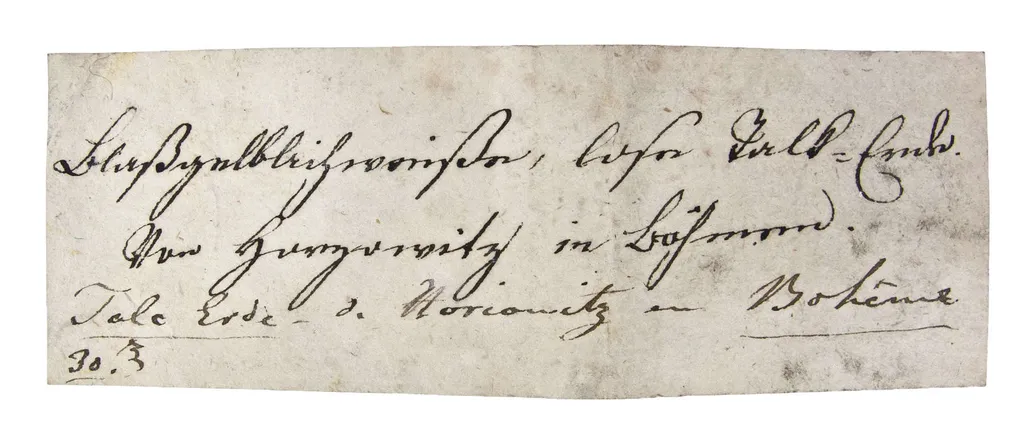 Blaßgelblichweiße, lose Talk=Erde.
Von Horzowitz in Böhmen.
Talc Erde - d. Horiowitz en Bohême
30.3